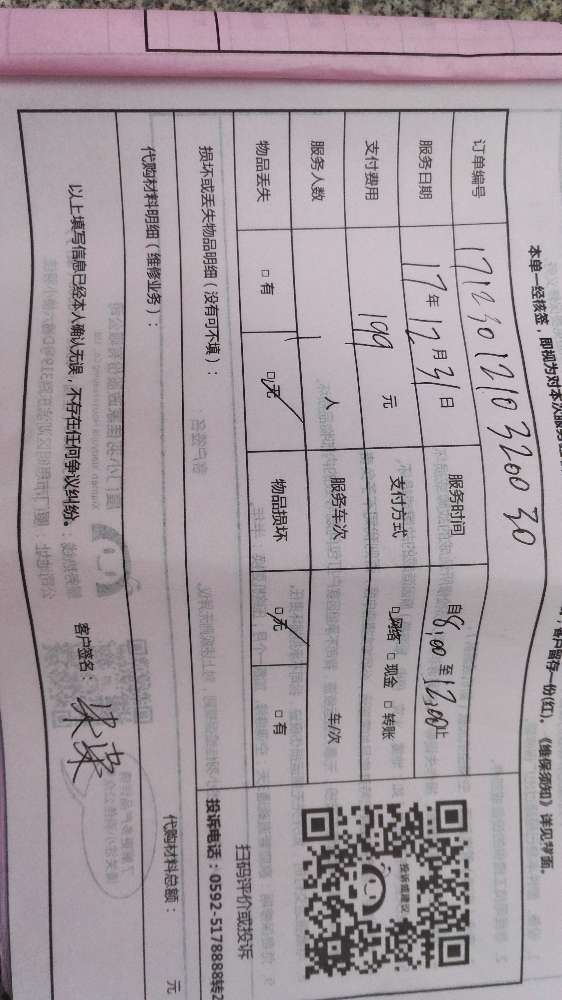 本单一经核签，即视为对本次服务
客户留存一份(红)。《维保须知》详见背面。
订单编号 17123012103200 30
服务日期 17年12月31日 服务时间 自8:00至12:00止
支付费用 199 元 支付方式 □网络 □现金 □转账
服务人数 1 人 服务车次 车/次
物品丢失 □有 □无 物品损坏 □无 □有
损坏或丢失物品明细（没有可不填）：
代购材料明细（维修业务）： 代购材料总额： 元
以上填写信息已经本人确认无误，不存在任何争议纠纷。 客户签名：
投诉或建议
扫码评价或投诉
投诉电话：0592-5178888转2